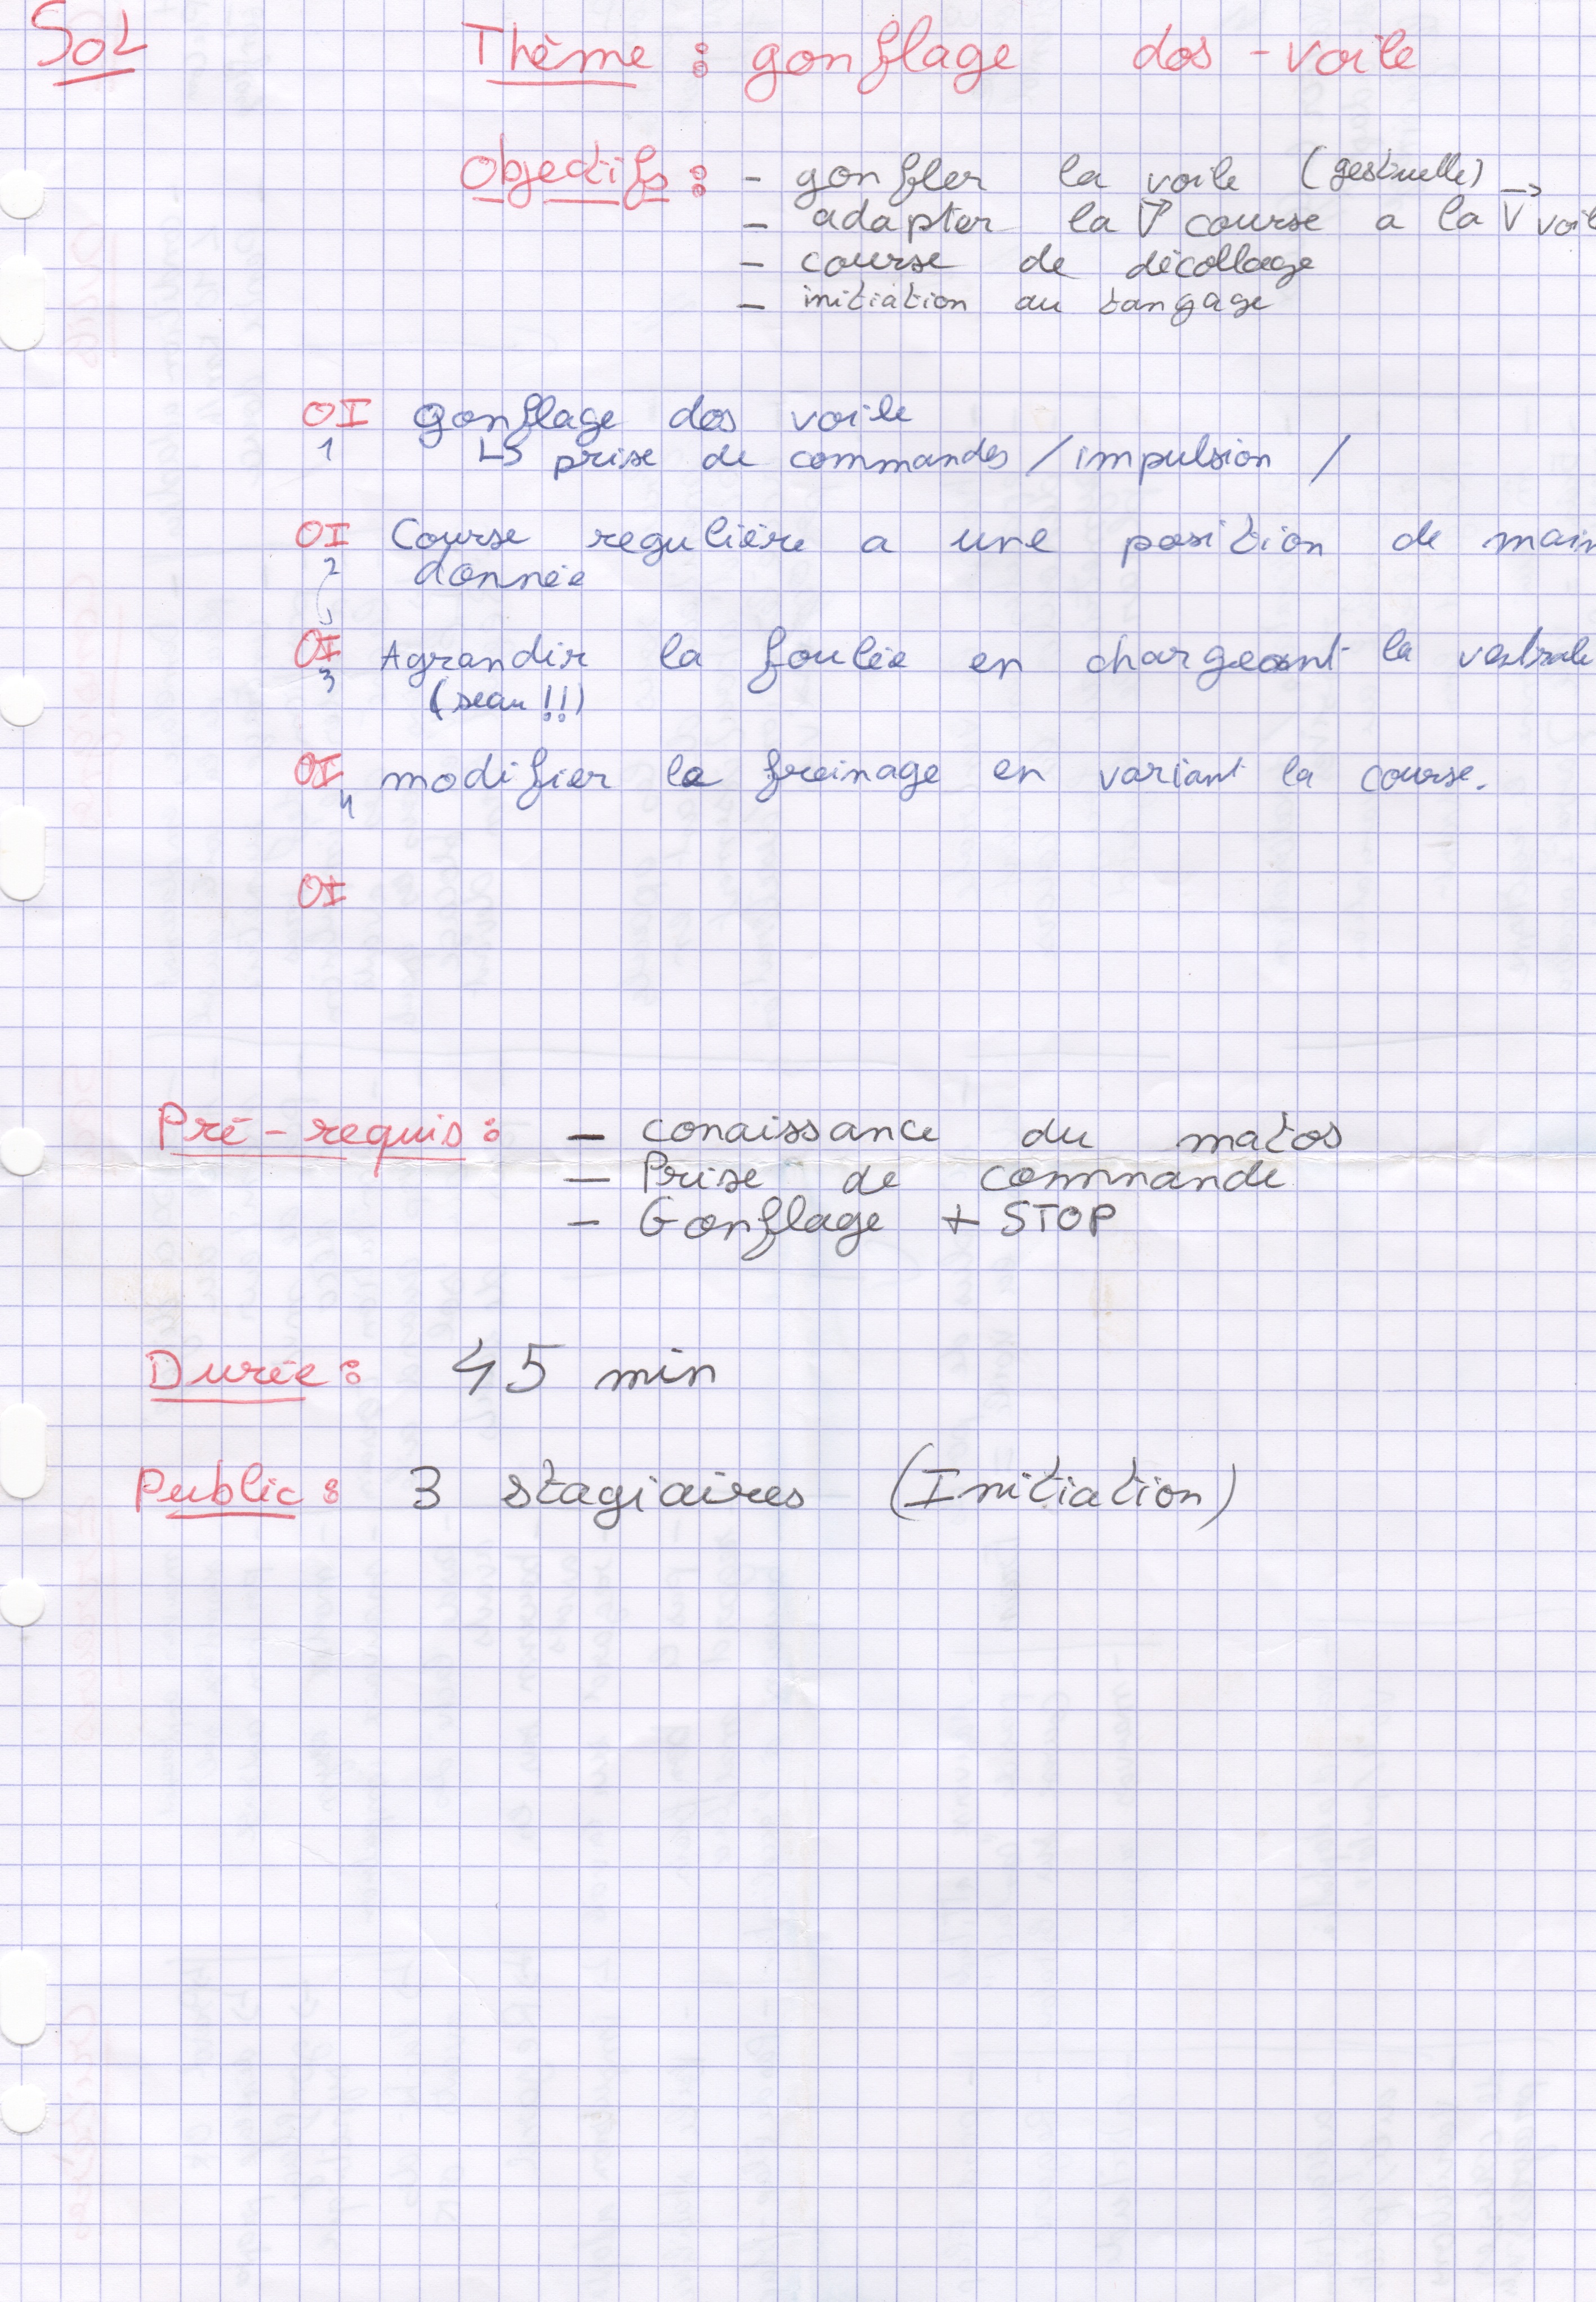 Sol
Thème : gonflage dos-voile
Objectifs : - gonfler la voile (gestuelle)
- adapter la V⃗ course a la V⃗ voil
- course de décollage
- initiation au tangage
OI 1 gonflage dos voile
↳ prise de commandes / impulsion /
OI 2 Course regulière a une position de main
donnée
OI 3 Agrandir la foulée en chargeant la ventrale
(seau !!)
OI 4 modifier le freinage en variant la course.
OI
Pré-requis : - conaissance du matos
- Prise de commande
- Gonflage + STOP
Durée : 45 min
Public : 3 stagiaires (Initiation)